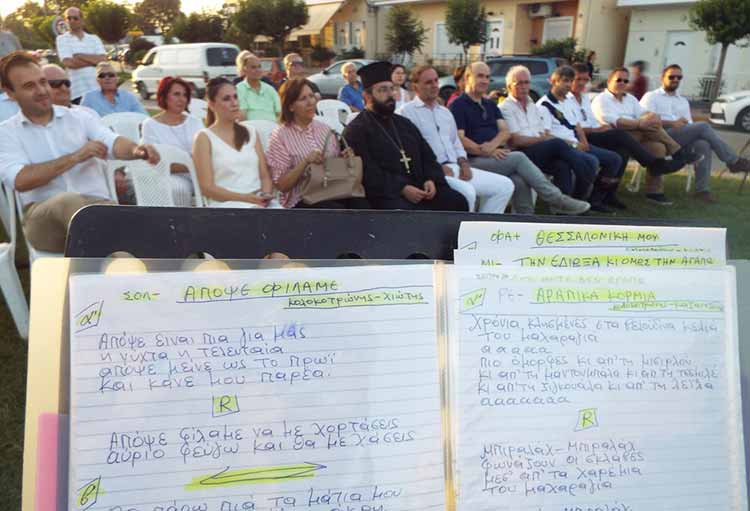 ΣΟΛ- ΑΠΟΨΕ ΦΙΛΑΜΕ
ΚΟΛΟΚΟΤΡΩΝΗΣ-ΧΙΩΤΗΣ
α'
Απόψε είναι πια για μας
η νύχτα η τελευταία
απόψε μείνε ως το πρωί
και κάνε μου παρέα.
R
Απόψε φίλαμε να με χορτάσεις
αύριο φεύγω και θα με χάσεις
β'
πάρω πιά τα μάτια μου
ΦΑ+ ΘΕΣΣΑΛΟΝΙΚΗ ΜΟΥ
ΜΙ- ΤΗΝ ΕΔΙΩΞΑ ΚΙ ΟΜΩΣ ΤΗΝ ΑΓΑΠΩ
α' ΡΕ- ΑΡΑΠΙΚΑ ΚΟΡΜΙΑ
Χρόνια κλεισμένες στα βελούδινα κελιά
του μαχαραγιά
αααααα
πιο όμορφες κι απ'τη μισιρλού
κι απ'τη μαντουμπάλα κι απ'τη
κι απ'τη ζιγκουάλα κι απ'τη λεϊλά
αααααααα
R
Μπιραλάχ-Μπιραλάχ
φωνάζουν οι σκλάβες
μεσ' απ'τα χαρέμια
του μαχαραγιά